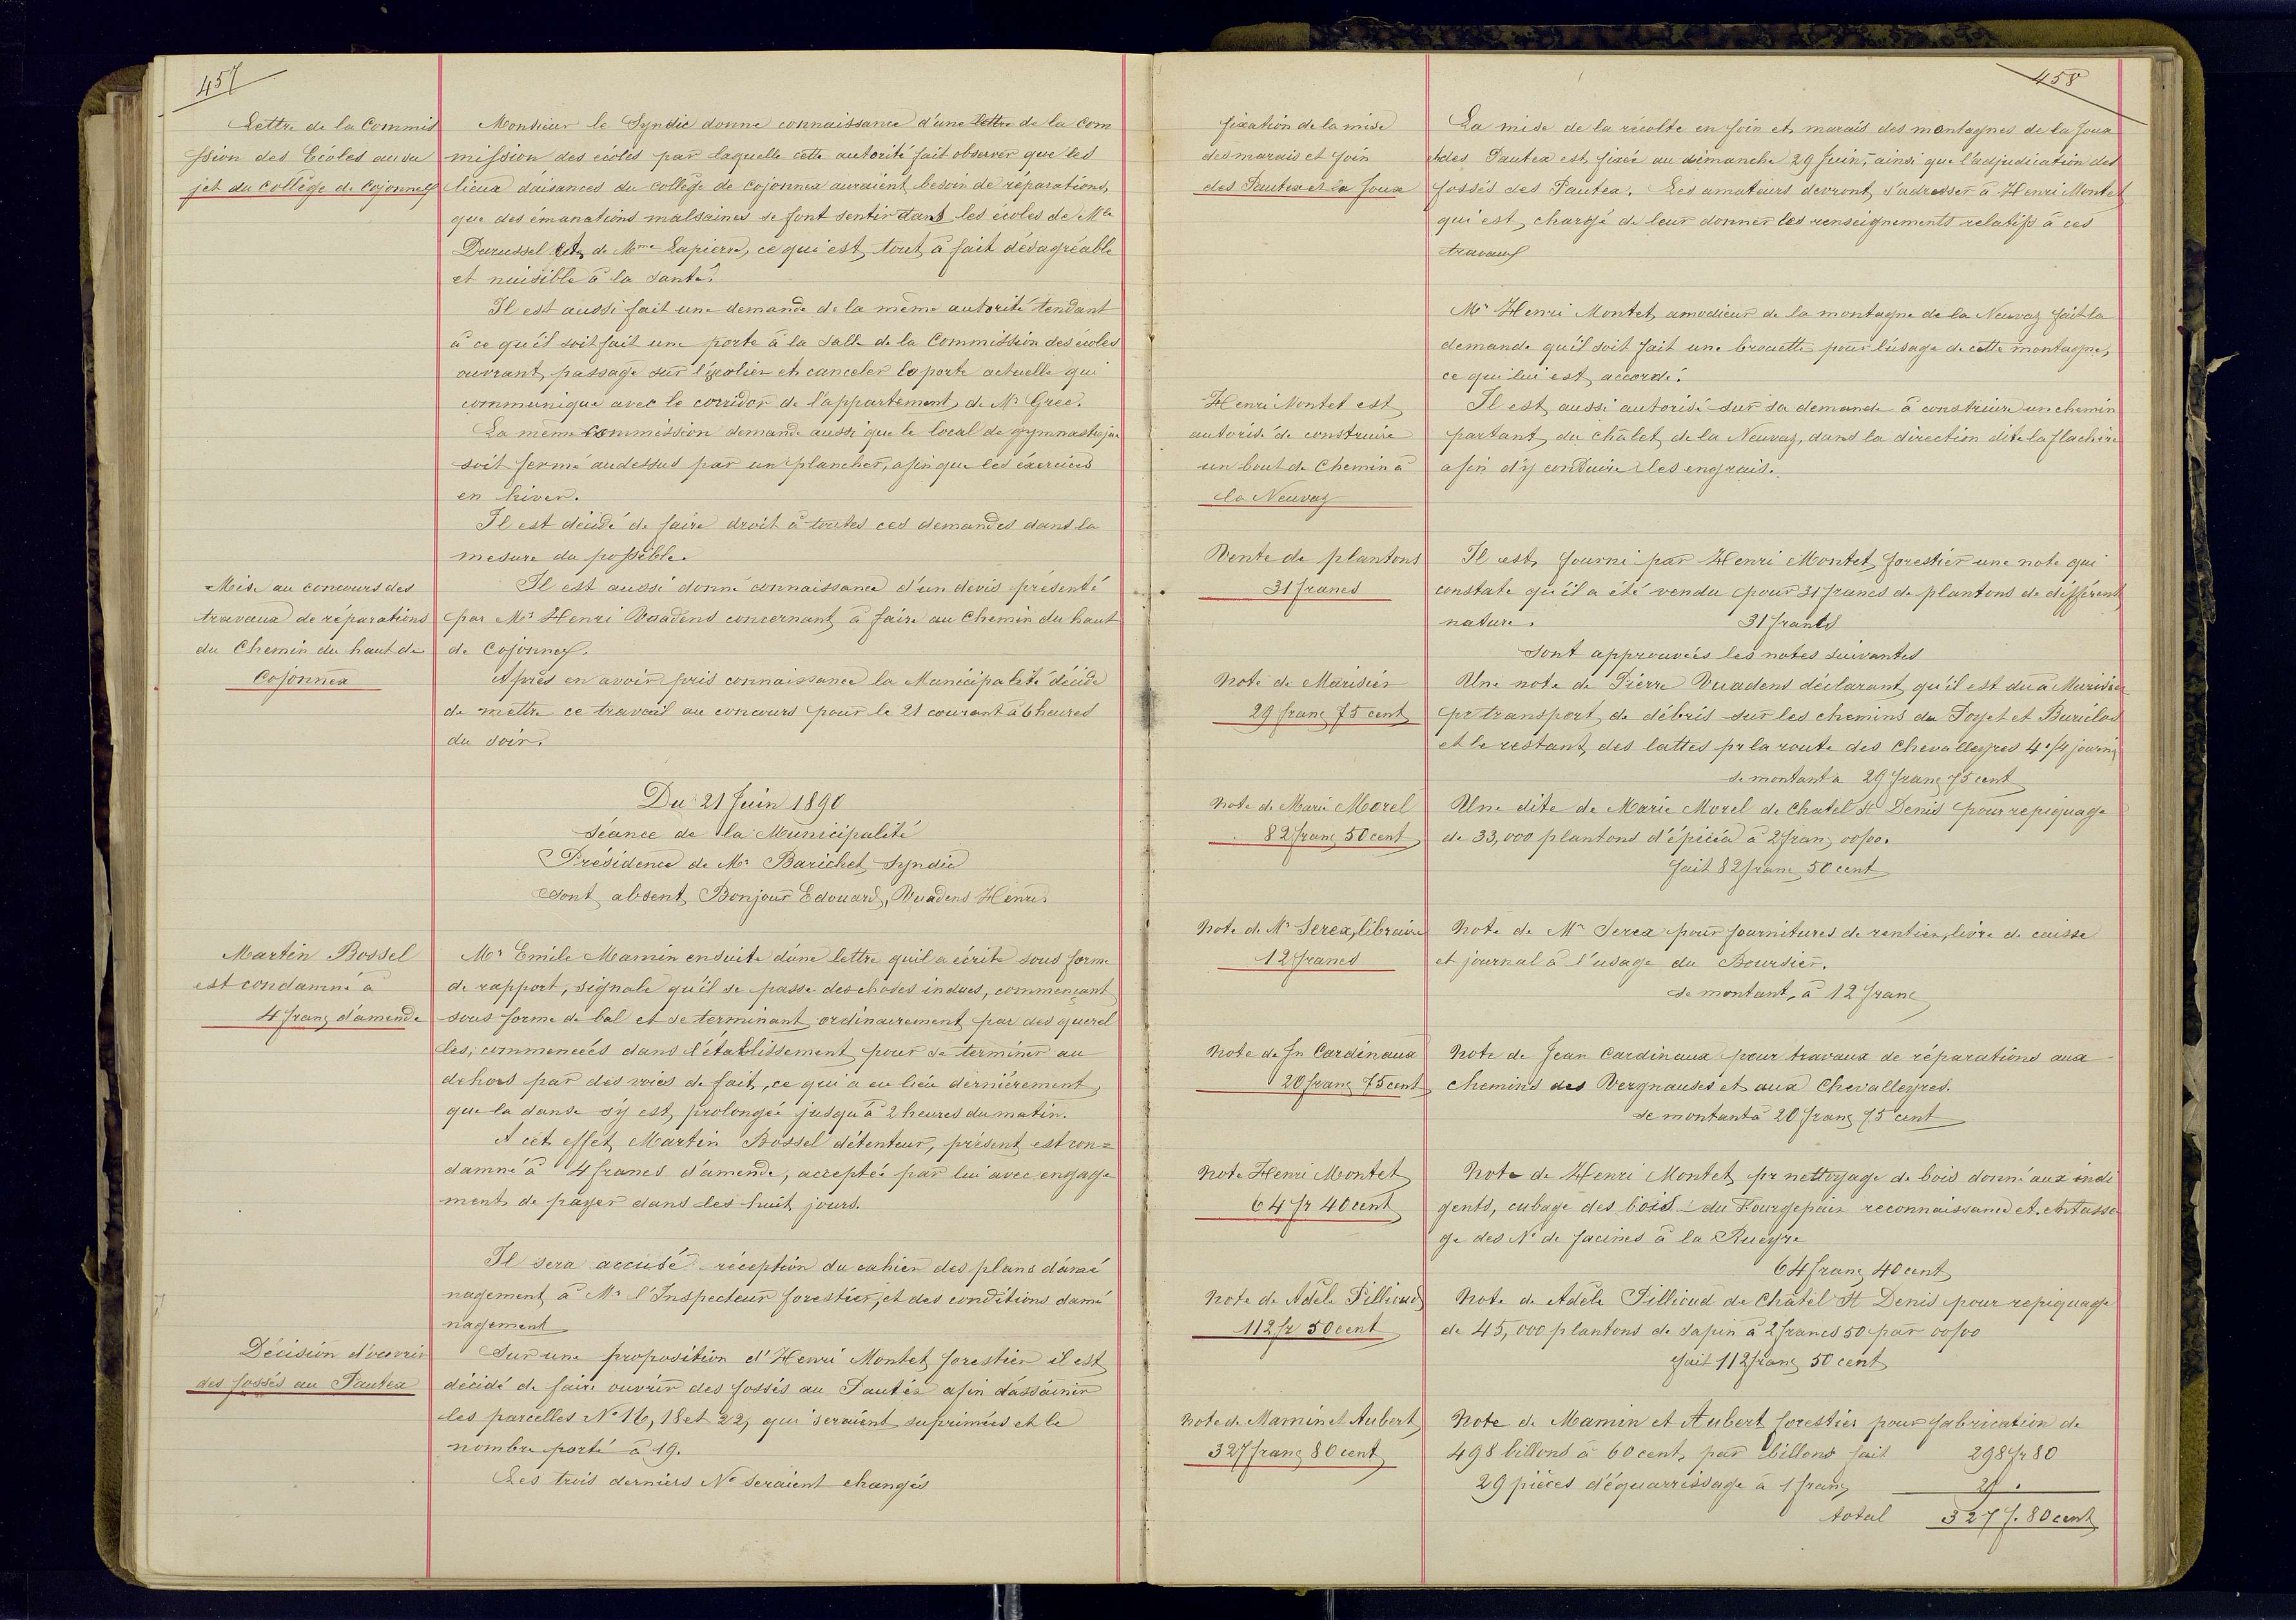 457
Lettre de la Commis
ssion des Ecoles au su
jet du collège de Cojonnex
Monsieur le Syndic donne connaissance d'une lettre de la Com
mission des écoles par laquelle cette autorité fait observer que les
lieux d'aisances du collège de Cojonnex auraient besoin de réparations,
que des émanations malsaines se font sentir dans les écoles de Mlle
Durussel et de Mme Lapierre, ce qui est tout à fait désagréable
et nuisible à la santé.
Il est aussi fait une demande de la même autorité tendant
à ce qu'il soit fait une porte à la salle de la Commission des écoles
ouvrant passage sur l'escalier et canceler la porte actuelle qui
communique avec le corridor de l'appartement de Mr Grec.
La même Commission demande aussi que le local de gymnastique
soit fermé au dessus par un plancher, afin que les éxercices
en hiver.
Il est décidé de faire droit à toutes ces demandes dans la
mesure du possible.
Mise au concours des
travaux de réparations
du Chemin du haut de
Cojonnex
Il est aussi donné connaissance d'un devis présenté
par Mr Henri Vuadens concernant à faire au Chemin du haut
de Cojonnex.
Après en avoir pris connaissance la Municipalité décide
de mettre ce travail au concours pour le 21 courant à 6 heures
du soir.
Du 21 Juin 1890
Séance de la Municipalité
Présidence de Mr Barichet Syndic
Sont absent Bonjour Edouard, Vuadens Henri.
Martin Bossel
est condamné à
4 franc d'amende
Mr Emile Mamin ensuite d'une lettre qu'il a écrite sous forme
de rapport, signale qu'il se passe des choses indues, commençant
sous forme de bal et se terminant ordinairement par des querel
les, commencées dans l'établissement pour se terminer au
dehors par des voies de fait, ce qui a eu lieu dernièrement,
que la danse s'y est prolongée jusqu'à 2 heures du matin.
A cet effet Martin Bossel détenteur, présent est con=
damné à 4 francs d'amende, acceptée par lui avec engage
ment de payer dans les huit jours.
Il sera accusé réception du cahier des plans d'amé
nagement à Mr l'Inspecteur forestier, et des conditions d'amé
nagement
Décision d'ouvrir
des fossés au Pautex
Sur une proposition d'Henri Montet forestier il est
décidé de faire ouvrir des fossés au Pautex afin d'assainir
les parcelles No 16, 18 et 22, qui seraient suprimées et le
nombre porté à 19.
Les trois derniers No seraient changés
458
fixation de la mise
des marais et foin
des Pautex et la Joux
La mise de la récolte en foin et marais des montagnes de la Joux
et des Pautex est fixée au dimanche 29 Juin, ainsi que l'adjudication des
fossés des Pautex. Les amateurs devront s'adresser à Henri Montet
qui est chargé de leur donner les renseignements relatifs à ces
travaux
Mr Henri Montet amodieur de la montagne de la Neuvaz fait la
demande qu'il soit fait une brouette pour l'usage de cette montagne,
ce qui lui est accordé.
Henri Montet est
autorisé de construire
un bout de Chemin à
la Neuvaz
Il est aussi autorisé sur sa demande à construire un chemin
partant du châlet de la Neuvaz, dans la direction dite la flachère
afin d'y conduire les engrais.
Vente de plantons
31 francs
Il est fourni par Henri Montet forestier une note qui
constate qu'il a été vendu pour 31 francs de plantons de différent
nature. 31 francs
Sont approuvées les notes suivantes
Note de Marisier
29 franc 75 cent
Une note de Pierre Vuadens déclarant qu'il est du à Marisier
pr transport de débris sur les chemins du Poyet et Buriclos
et le restant des lattes pr la route des Chevalleyres 4 1/4 journé
se montant a 29 franc 75 cent
Note de Marie Morel
82 franc 50 cent
Une dite de Marie Morel de Chatel St Denis pour repiquage
de 33,000 plantons d'épicéa à 2 franc 00/00.
fait 82 franc 50 cent
Note de Mr Serex, libraire
12 francs
Note de Mr Serex pour fournitures de rentier, livre de caisse
et journal à l'usage du Boursier.
se montant à 12 franc
Note de Jn Cardinaux
20 franc 75 cent
Note de Jean Cardinaux pour travaux de réparations aux
chemins des Vergnauses et aux Chevalleyres.
se montant à 20 franc 75 cent
Note Henri Montet
64 fr 40 cent
Note de Henri Montet pr nettoyage de bois donné aux indi
gents, cubage des bois du Fourgepain reconnaissance et entassa
ge des No de facines à la Rueyre
64 franc 40 cent
Note de Adèle Pillioud
112 fr 50 cent
Note de Adèle Pillioud de Châtel St Denis pour repiquage
de 45,000 plantons de sapin à 2 francs 50 par 00/00
fait 112 franc 50 cent
Note de Mamin et Aubert
327 franc 80 cent
Note de Mamin et Aubert forestier pour fabrication de
498 billons à 60 cent. par billons fait 298 fr 80
29 pièces d'équarrissage à 1 franc 29 .
total 327 f. 80 cent